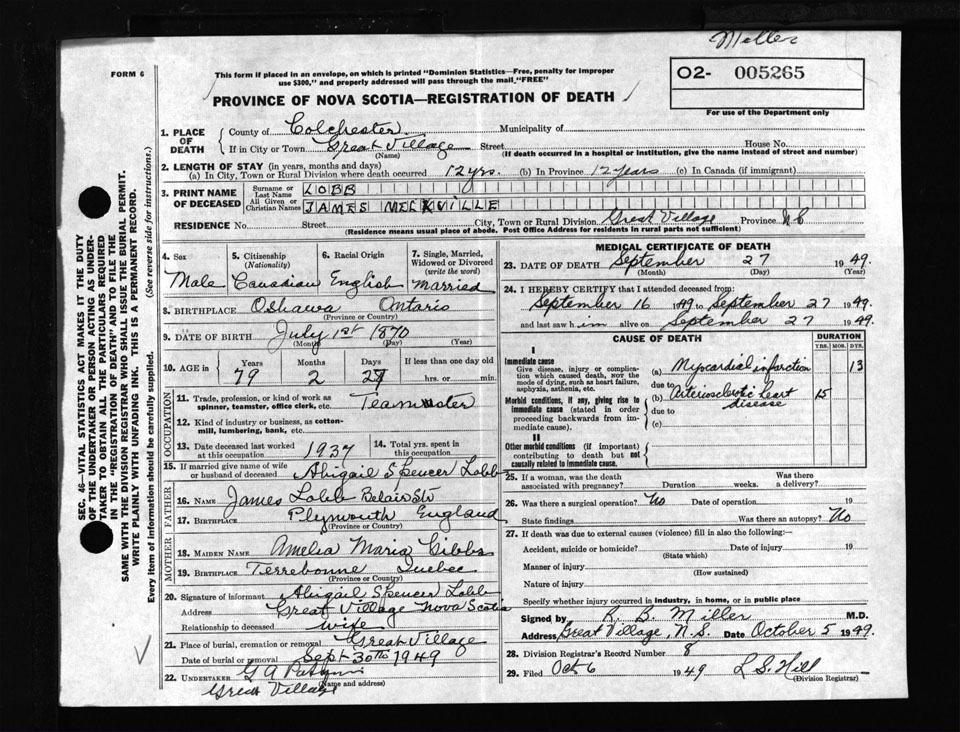 Miller
FORM 6
This form if placed in an envelope, on which is printed "Dominion Statistics—Free, penalty for improper
use $300," and properly addressed will pass through the mail "FREE"
PROVINCE OF NOVA SCOTIA—REGISTRATION OF DEATH
O2- 005265
For use of the Department only
1. PLACE OF DEATH
County of Colchester Municipality of
If in City or Town Great Village Street House No.
(Name) (If death occurred in a hospital or institution, give the name instead of street and number)
2. LENGTH OF STAY (in years, months and days)
(a) In City, Town or Rural Division where death occurred 12 yrs. (b) In Province 12 years (c) In Canada (if immigrant)
3. PRINT NAME OF DECEASED
Surname or Last Name LOBB
All Given or Christian Names JAMES MELKVILLE
RESIDENCE No. Street City, Town or Rural Division Great Village Province
(Residence means usual place of abode. Post Office Address for residents in rural parts not sufficient)
4. Sex Male
5. Citizenship (Nationality) Canadian
6. Racial Origin English
7. Single, Married, Widowed or Divorced (write the word) Married
8. BIRTHPLACE Oshawa Ontario
(Province or Country)
9. DATE OF BIRTH July 1st 1870
(Month) (Day) (Year)
10. AGE in Years 79 Months 2 Days 27 If less than one day old hrs. or min.
OCCUPATION
11. Trade, profession, or kind of work as spinner, teamster, office clerk, etc. Teamster
12. Kind of industry or business, as cotton-mill, lumbering, bank, etc.
13. Date deceased last worked at this occupation 1937
14. Total yrs. spent in this occupation
15. If married give name of wife or husband of deceased Abigail Spencer Lobb
FATHER
16. NAME James Lobb Belair St
17. BIRTHPLACE Plymouth England
(Province or Country)
MOTHER
18. MAIDEN NAME Amelia Maria Gibbs
19. BIRTHPLACE Terrebonne Quebec
(Province or Country)
20. Signature of informant Abigail Spencer Lobb
Address Great Village Nova Scotia
Relationship to deceased wife
21. Place of burial, cremation or removal Great Village
Date of burial or removal Sept 30th 1949
22. UNDERTAKER G A
(Name and address)
Great Village
MEDICAL CERTIFICATE OF DEATH
23. DATE OF DEATH September 27 1949
(Month) (Day) (Year)
24. I HEREBY CERTIFY that I attended deceased from:
September 16 1949 to September 27 1949
and last saw him alive on September 27 1949
CAUSE OF DEATH
DURATION
YRS. MOS. DYS.
I
Immediate cause
Give disease, injury or complication which caused death, NOT the mode of dying, such as heart failure, asphyxia, asthenia, etc.
(a) Myocardial infarction 13
due to
Morbid conditions, if any, giving rise to immediate cause (stated in order proceeding backwards from immediate cause).
(b) Arteriosclerotic heart disease 15
due to
(c)
II
Other morbid conditions (if important) contributing to death but not causally related to immediate cause.
25. If a woman, was the death associated with pregnancy? Duration weeks. Was there a delivery?
26. Was there a surgical operation? No Date of operation 19
State findings Was there an autopsy? No
27. If death was due to external causes (violence) fill in also the following:—
Accident, suicide or homicide? Date of injury 19
(State which)
Manner of injury
(How sustained)
Nature of injury
Specify whether injury occurred in industry, in home, or in public place
Signed by R. B. Miller M.D.
Address Great Village, N.S. Date October 5 1949.
28. Division Registrar's Record Number 8
29. Filed Oct 6 1949 L S Hill
(Division Registrar)
SEC. 46—VITAL STATISTICS ACT MAKES IT THE DUTY
OF THE UNDERTAKER OR PERSON ACTING AS UNDER-
TAKER TO OBTAIN ALL THE PARTICULARS REQUIRED
IN THE "REGISTRATION OF DEATH" AND TO FILE THE
SAME WITH THE DIVISION REGISTRAR WHO SHALL ISSUE THE BURIAL PERMIT.
WRITE PLAINLY WITH UNFADING INK. THIS IS A PERMANENT RECORD.
Every item of information should be carefully supplied. (See reverse side for instructions.)